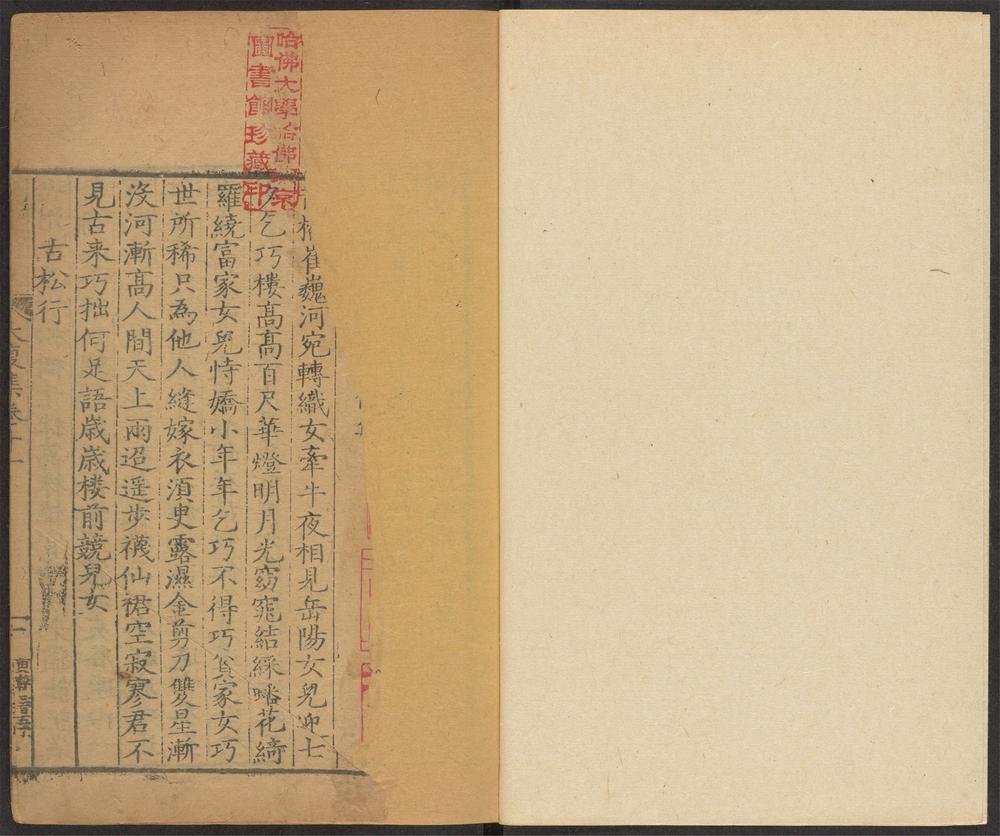 哈佛大學哈佛
圖書館珍藏印
崔巍河宛轉織女牽牛夜相見岳陽女兒迎七
夕乞巧樓高高百尺華燈明月光窈窕結綵蟠花綺
羅繞富家女兒恃嬌小年年乞巧不得巧貧家女巧
世所稀只為他人縫嫁衣湏臾露濕金剪刀雙星漸
沒河漸高人間天上兩迢遥步襪仙裙空寂寥君不
見古来巧拙何足語歳歳楼前競兒女
古松行